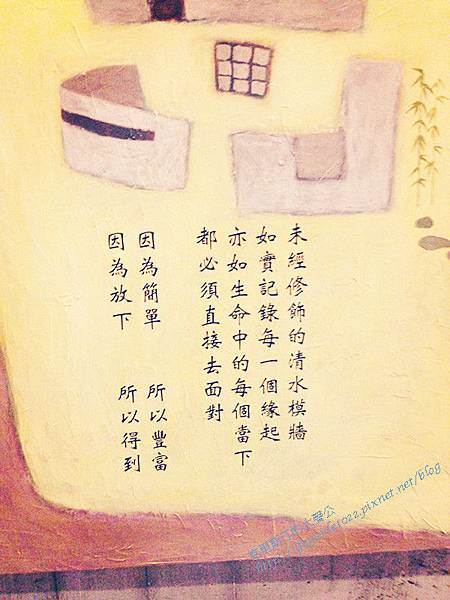 未經修飾的清水模牆
如實記錄每一個緣起
亦如生命中的每個當下
都必須直接去面對
因為簡單 所以豐富
因為放下 所以得到